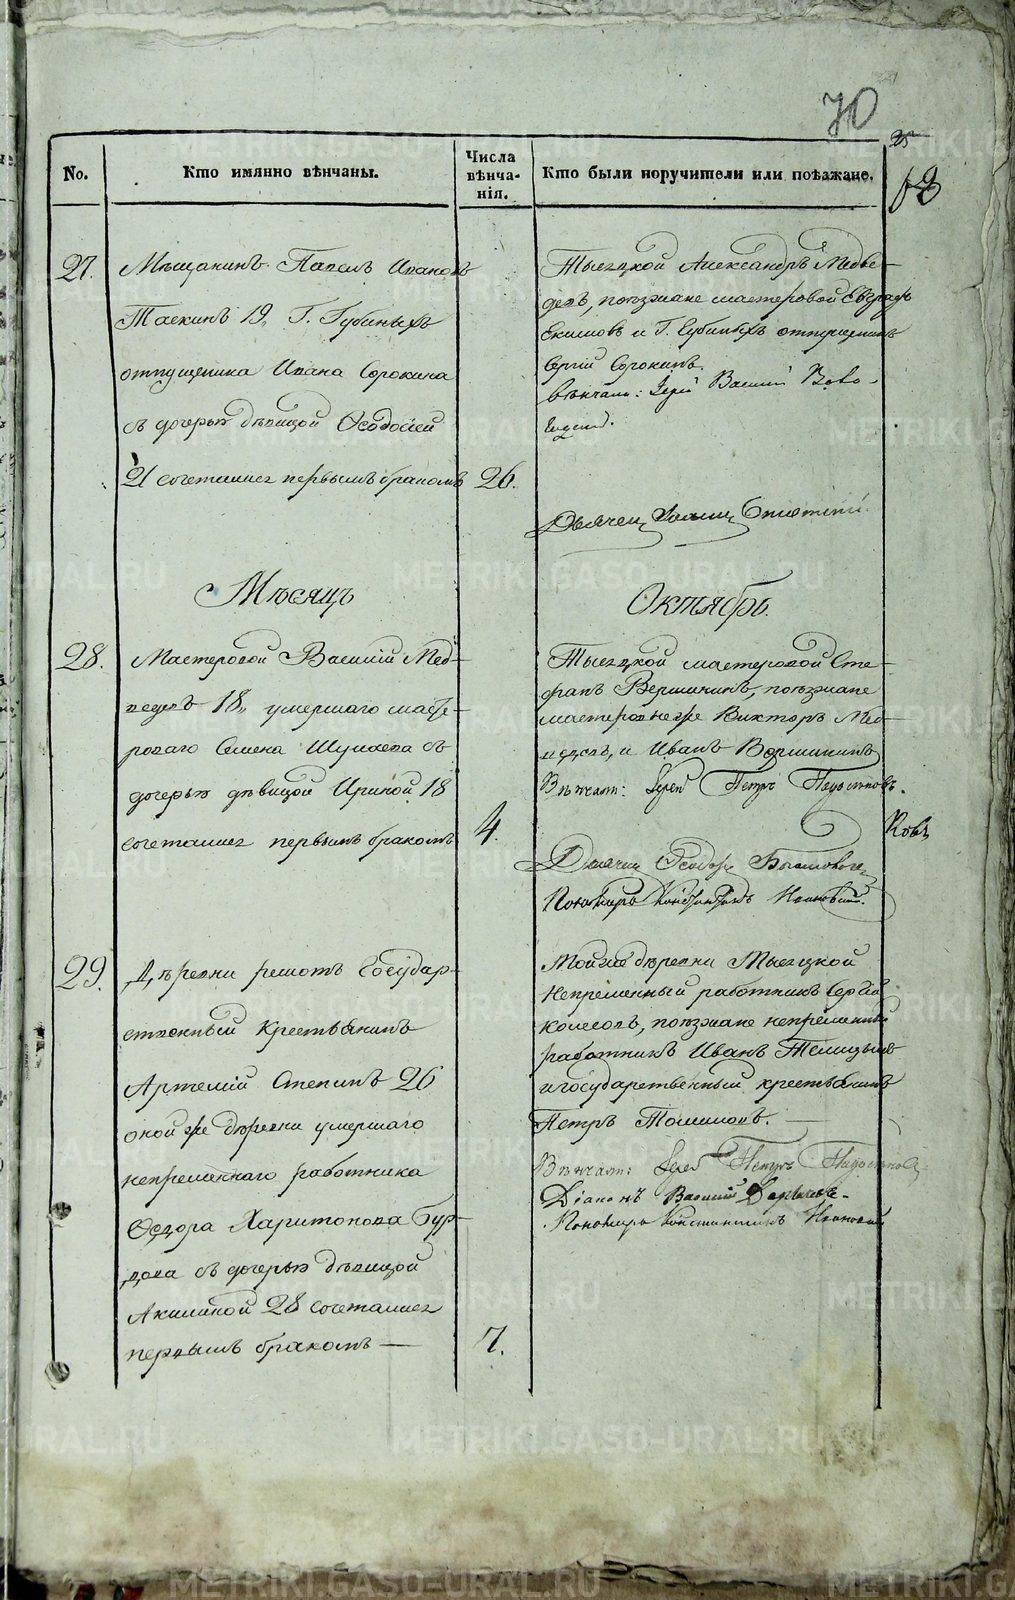 70
No.
Кто имянно вѣнчаны.
Числа вѣнча-нія.
Кто были поручители или поѣзжане.
27.
Мѣщанинъ Павелъ Ивановъ
Таскинъ 19, Г. Губиныхъ
отпущеника Ивана Сорокина
съ дочерью дѣвицой Ѳеодосіей
21 сочетались первымъ бракомъ
26.
Тысяцкой Александръ Медве-
девъ, поѣзжане мастеровой Евграфъ
Екимовъ и Г. Губиныхъ отпущеникъ
Сергій Сорокинъ.
Вѣнчалъ: Іерей Василій
Мѣсяцъ
Октябрь.
28.
Мастеровой Василій Мед-
ведевъ 18, умершаго масте-
роваго Семена Шумаева съ
дочерью дѣвицой Ириной 18
сочетались первымъ бракомъ
4.
Тысяцкой мастеровой Сте-
фанъ Вершининъ, поѣзжане
мастеровые же Викторъ Мед-
ведевъ, и Иванъ Вершининъ
Вѣнчалъ: Іерей Петръ
Дьячекъ Ѳеодоръ
Пономарь Константинъ
29.
Дѣревни решотъ Государ-
ственный Крестьянинъ
Артемій Стенинъ 26
оной же дѣревни умершаго
непременнаго работника
Ѳедора Харитонова Бур-
дова съ дочерью дѣвицой
Акилиной 28 сочетались
первымъ бракомъ —
7.
Той же дѣревни Тысяцкой
Непременный работникъ Сергій
Колесовъ, поѣзжане непременный
работникъ Иванъ
и государственный крестьянинъ
Петръ Томиловъ. —
Вѣнчалъ: Іерей Петръ
Діаконъ Василій
Пономарь Константинъ
METRIKI.GASO-URAL.RU